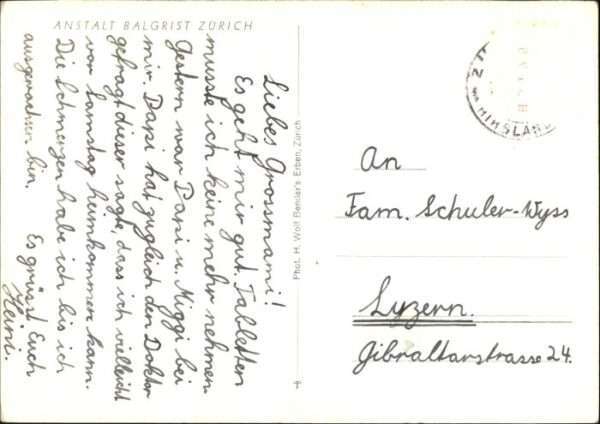 ANSTALT BALGRIST ZÜRICH
Liebes Grossmami!
Es geht mir gut. Tabletten
musste ich keine mehr nehmen.
Gestern war Dapi u. Miggi bei
mir. Dapi hat zugleich den Doktor
gefragt dieser sagte, dass ich vielleicht
vor Samstag heimkommen kann.
Die Schmerzen habe ich bis ich
ausgewachsen bin.
Es grüsst Euch
Heini.
Phot. H. Wolf-Bender's Erben, Zürich
An
Fam. Schuler-Wyss
Luzern.
Gibraltarstrasse 24.